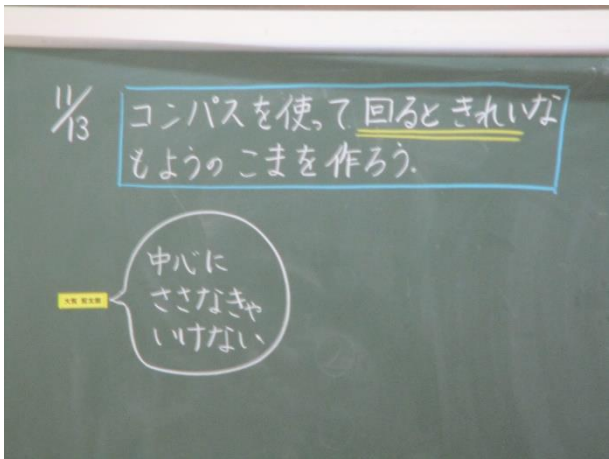 11/13
コンパスを使って回るときれいな
もようのこまを作ろう.
中心に
ささなきゃ
いけない